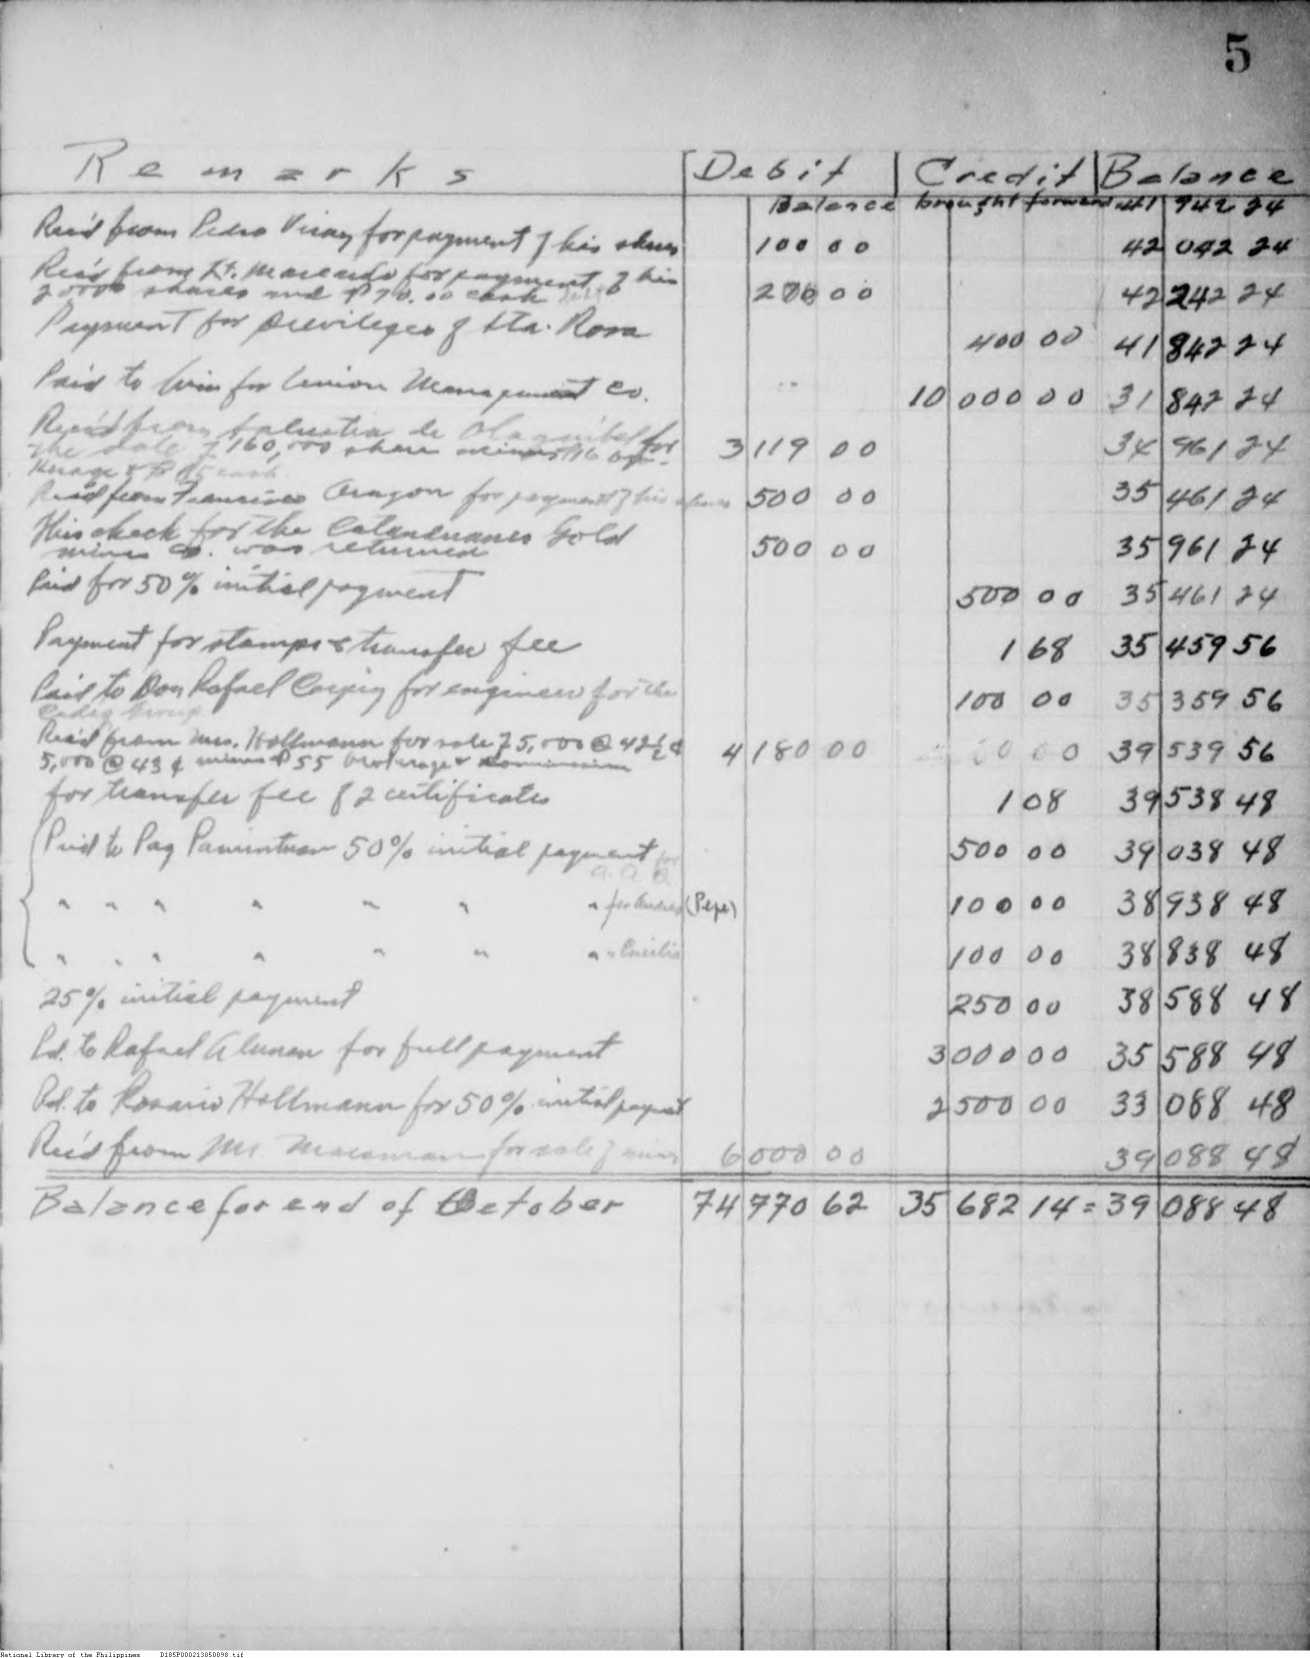 5
Remarks Debit Credit Balance
Balance brought forward 41 942 24
Rec'd from Pedro for payment of his shares 100 00 42 042 24
Rec'd from Lt. for payment of his
2000 shares and ₱70.00 cash 200 00 42 242 24
Payment for privileges of Sta. Rosa 400 00 41 842 24
Paid to him for Union Management Co. 10 000 00 31 842 24
Rec'd from de for
the sale of 160,000 share minus 3 119 00 34 961 24
cash
Rec'd from Francisco Aragon for payment of his shares 500 00 35 461 24
His check for the Catanduanes Gold
mines Co. was returned 500 00 35 961 24
Paid for 50% initial payment 500 00 35 461 24
Payment for stamps & transfer fee 1 68 35 459 56
Paid to Don Rafael for engineer for the 100 00 35 359 56
Group
Rec'd from Mrs. Hollmann for sale of 5,000 @ 42½ ¢
5,000 @ 43 ¢ minus ₱55 brokerage 4 180 00 39 539 56
for transfer fee of 2 certificates 1 08 39 538 48
Paid to Pag Pamintuan 50% initial payment for 500 00 39 038 48
a. a. Q
" " " " " " " for Andres (Pepe) 100 00 38 938 48
" " " " " " " " 100 00 38 838 48
25% initial payment 250 00 38 588 48
Pd. to Rafael Alunan for full payment 3000 00 35 588 48
Pd. to Rosario Hollmann for 50% initial payment 2500 00 33 088 48
Rec'd from Mr. for sale of 6000 00 39 088 48
Balance for end of October 74 770 62 35 682 14 = 39 088 48
National Library of the Philippines D185P000213050098.tif